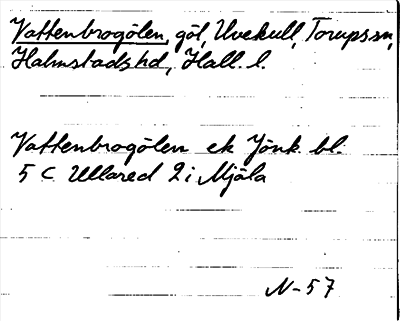 Vattenbrogölen, göl, Uvekull, Torups sn,
Halmstads hd, Hall. l.
Vattenbrogölen ek Jönk. bl.
5 C Ullared 2 i Mjäla
N-57